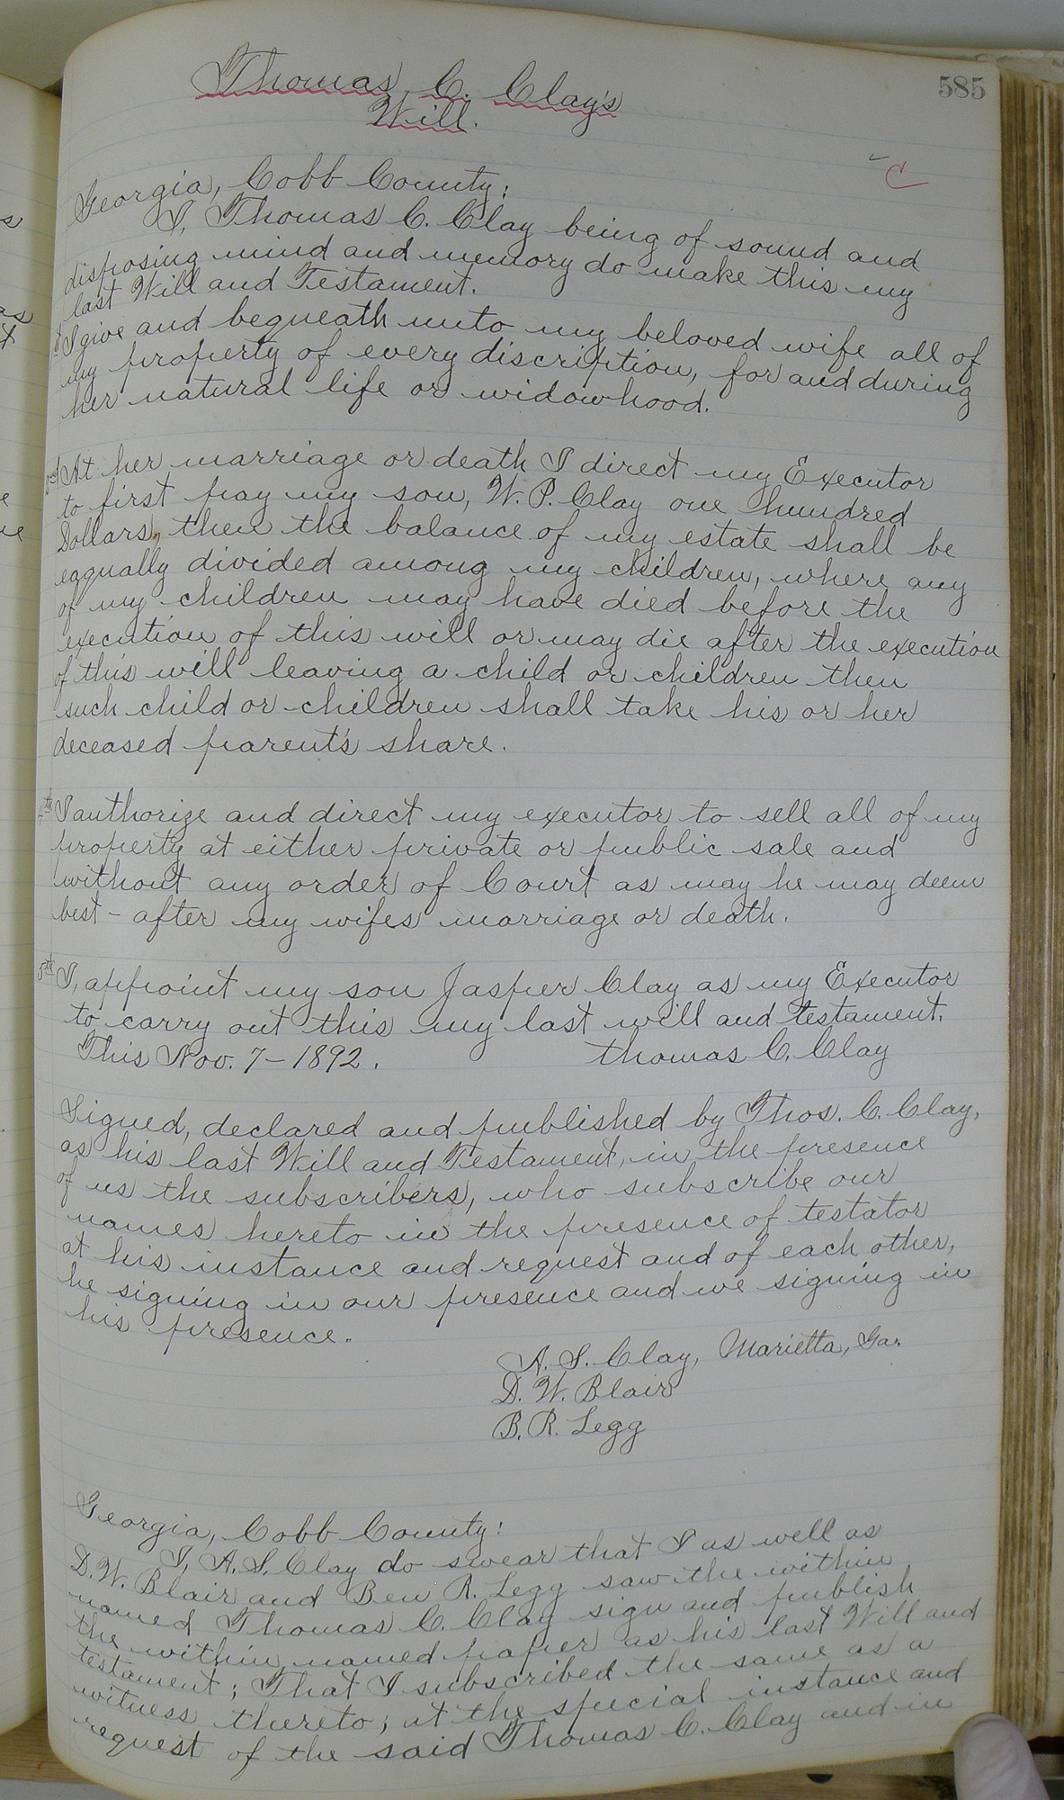 585
Thomas C. Clay's
Will.
C
Georgia, Cobb County:
I, Thomas C. Clay being of sound and
disposing mind and memory do make this my
last Will and Testament.
I give and bequeath unto my beloved wife all of
my property of every discription, for and during
her natural life or widowhood.
At her marriage or death I direct my Executor
to first pay my son, W. P. Clay one hundred
Dollars, then the balance of my estate shall be
eqqually divided among my children, where any
of my children may have died before the
execution of this will or may die after the execution
of this will leaving a child or children then
such child or children shall take his or her
deceased parent's share.
I authorize and direct my executor to sell all of my
property at either private or public sale and
without any order of Court as may he may deem
best - after my wifes marriage or death.
5th I, appoint my son Jasper Clay as my Executor
to carry out this my last will and testament.
This Nov. 7 - 1892. Thomas C. Clay
Signed, declared and published by Thos. C. Clay,
as his last Will and Testament, in the presence
of us the subscribers, who subscribe our
names hereto in the presence of testator
at his instance and request and of each other,
he signing in our presence and we signing in
his presence.
A. S. Clay, Marietta, Ga.
D. W. Blair
B. R. Legg
Georgia, Cobb County:
I, A. S. Clay do swear that I as well as
D. W. Blair and Ben R. Legg saw the within
named Thomas C. Clay sign and publish
the within named paper as his last Will and
testament; That I subscribed the same as a
witness thereto; at the special instance and
request of the said Thomas C. Clay and in